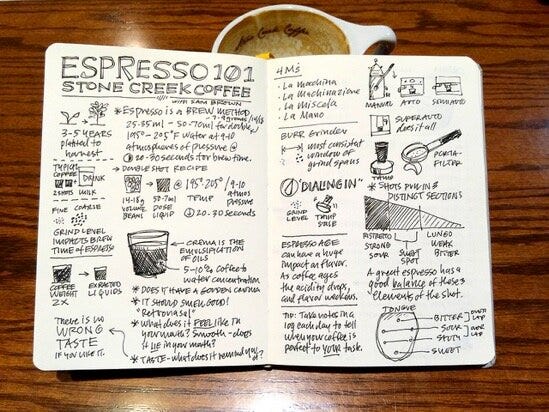 Stone Creek Coffee
ESPRESSO 101
STONE CREEK COFFEE
WITH SAM BROWN
3-5 YEARS
planted to
harvest.
TYPICAL
COFFEE
DRINK
2 SHOTS MILK
FINE COARSE
GRIND LEVEL
IMPACTS BREW
TIME OF ESPRESSO
COFFEE
WEIGHT
2X
EXTRACTED
LIQUIDS
THERE IS NO
WRONG
TASTE
IF YOU LIKE IT.
* ESPRESSO is A BREW METHOD
25-35 ml - 50-70ml for double,
195° - 205° F water at 9-10
atmospheres of pressure @
20-30 seconds for brew time.
* DOUBLE SHOT RECIPE
14-18g
BEANS
50-70ml
LIQUID
@ 195° 205°
TEMP
/ 9-10
atmos
PRESSURE
20-30 seconds
CREMA IS THE
EMULSIFICATION
OF OILS
5-10% Coffee to
water concentration
* DOES IT HAVE A GOLDEN CREMA
* IT SHOULD SMELL GOOD!
"Retronasal"
* What does it FEEL like IN
your mouth? Smooth - does
it LIE in your mouth?
* TASTE - what does it remind you of?
4 M's
• La macchina
• La Macinazione
• La Miscela
• La Mano
BURR Grinder
most consistent
window of
grind spans
"DIALING IN"
GRIND
LEVEL
TAMP
ESPRESSO AGE
can have a huge
impact on flavor.
As coffee ages
the acidity drops,
and flavor weakens.
TIP: Take notes in a
log each day to tell
when your coffee is
perfect to YOUR taste.
MANUAL AUTO SEMIAUTO
SUPERAUTO
does it all
TAMP
PORTA-
FILTER
* SHOTS PULL IN 3
DISTINCT SECTIONS
RISTRETTO
STRONG
SOUR
SWEET
SPOT
LUNGO
WEAK
BITTER
A great espresso has a
good balance of these 3
elements of the shot.
TONGUE
BITTER
SOUR
SALTY
SWEET
OVER
LAP
OVER
LAP